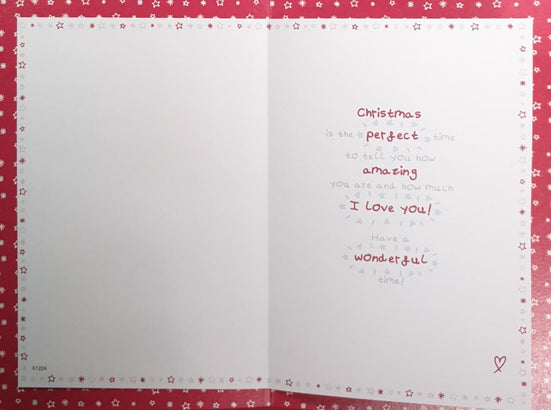 Christmas
is the perfect time
to tell you how
amazing
you are and how much
I love you!
Have a
wonderful
time!
X1224